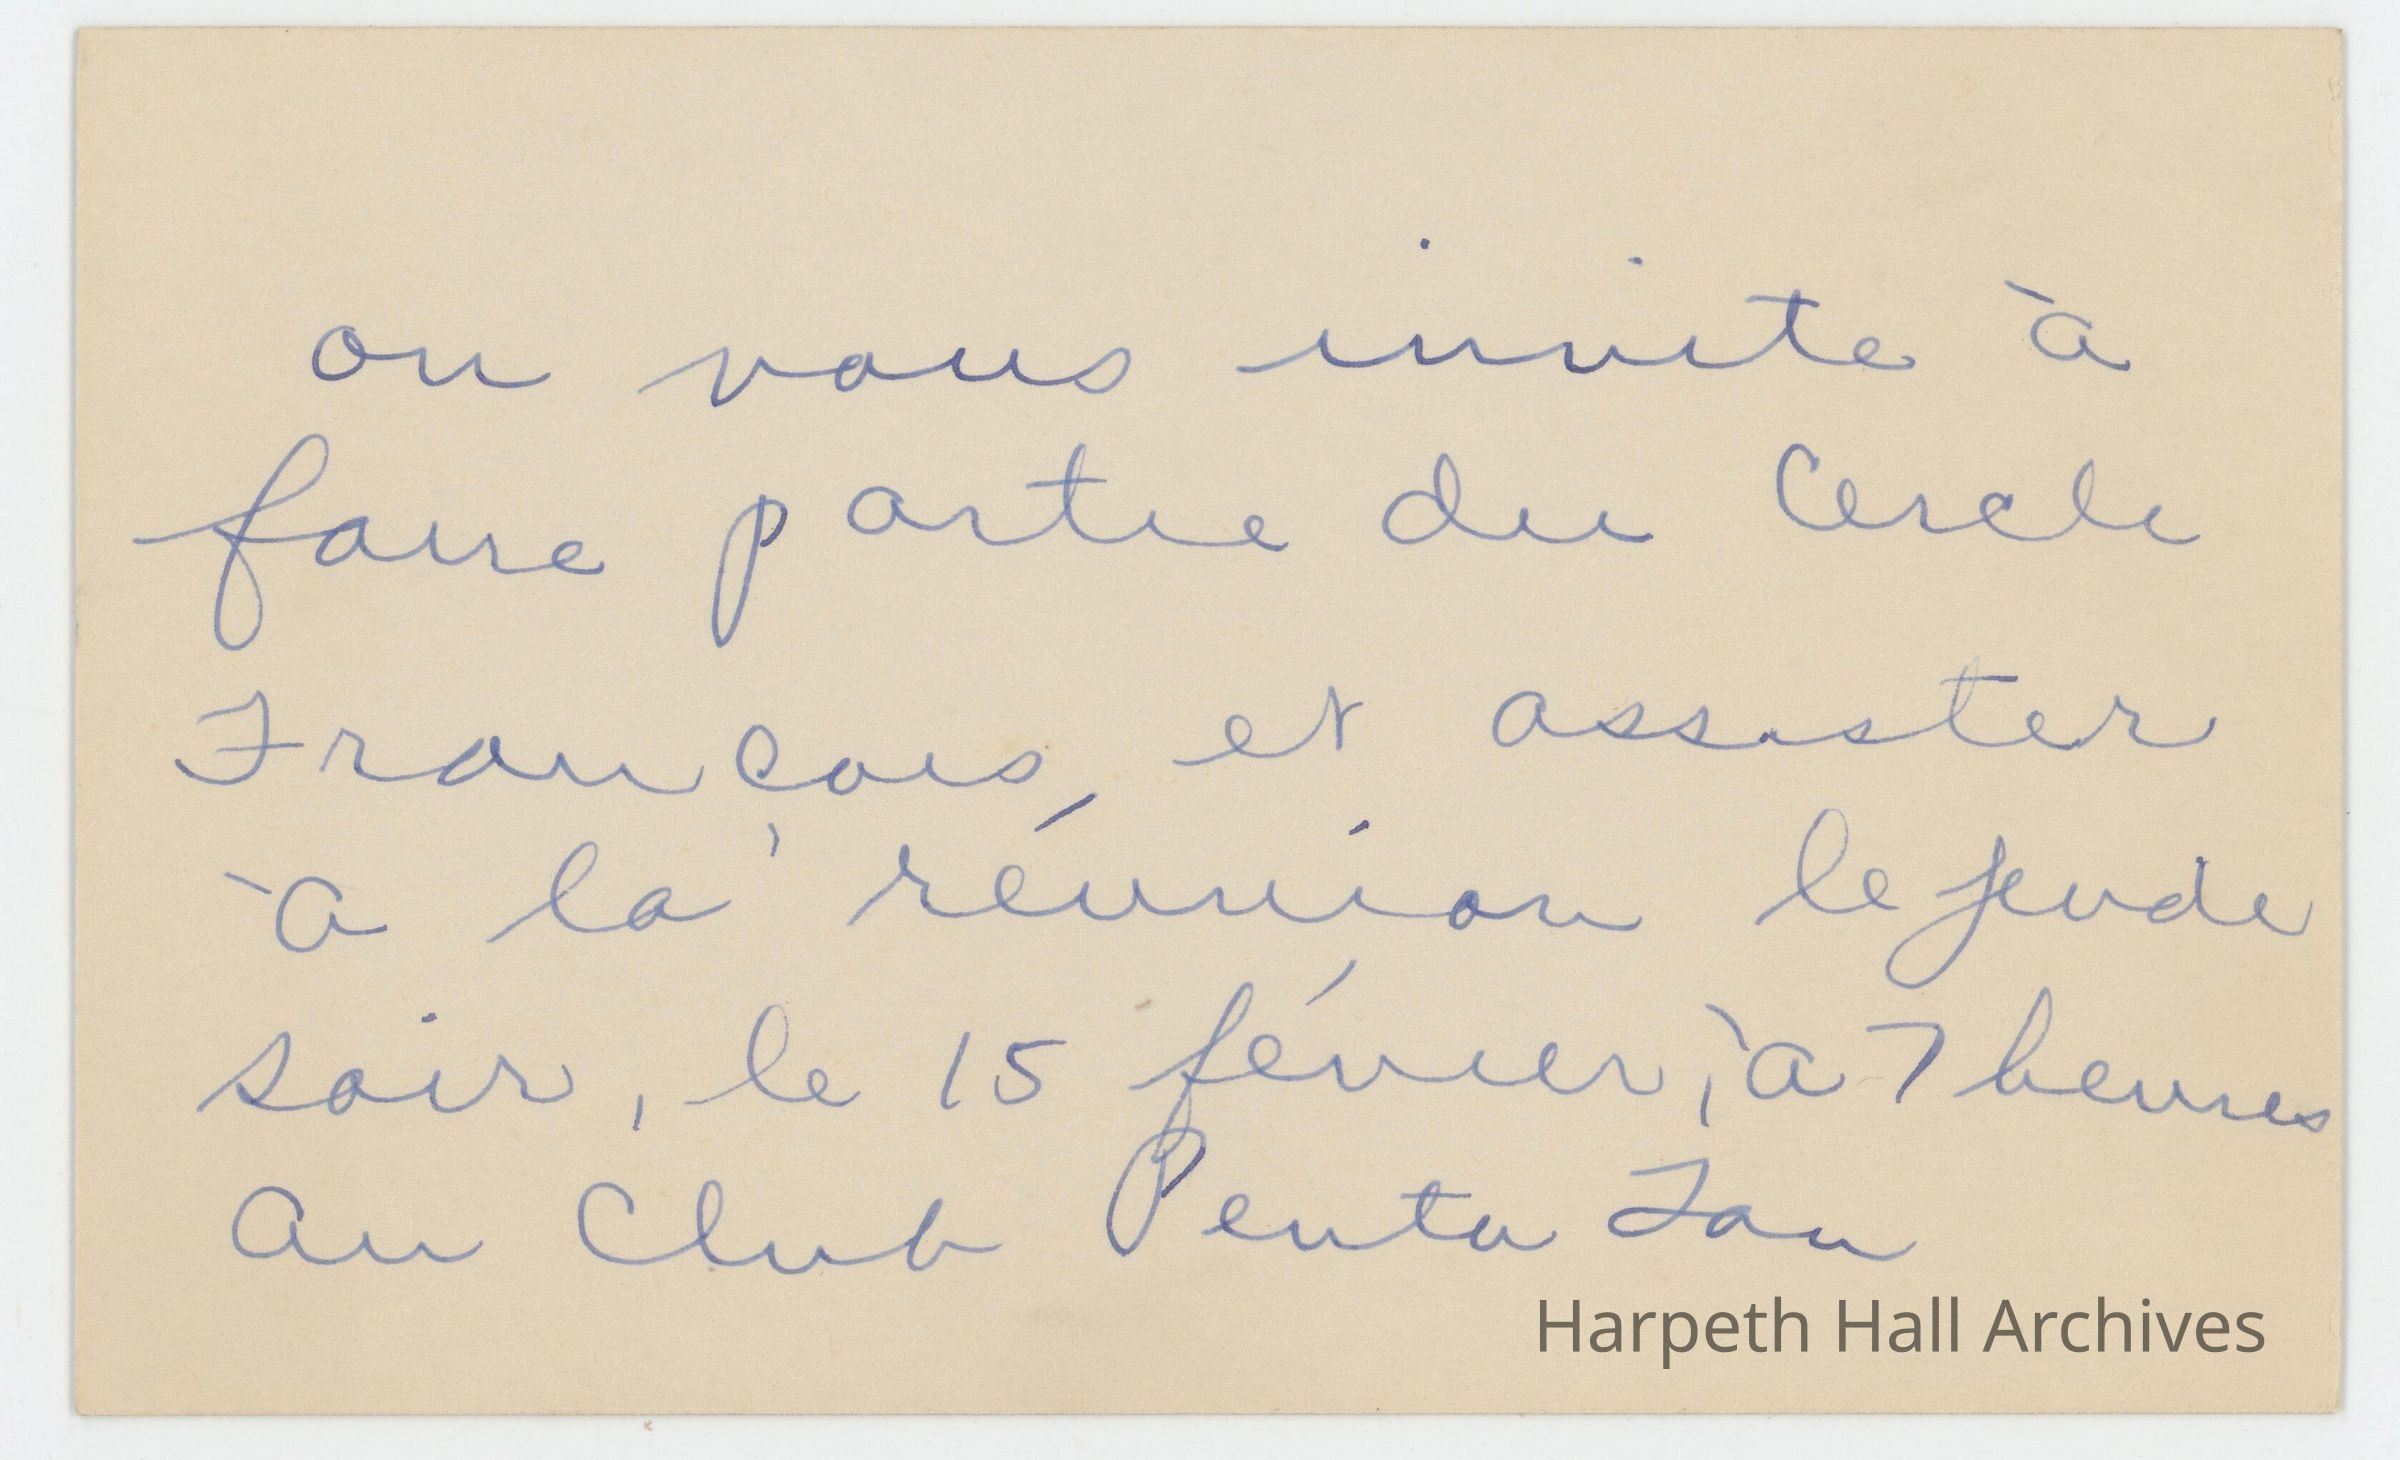 on vous invite à
faire partie du Cercle
Français, et assister
à la réunion le jeude
soir, le 15 févier, à 7 heures
au Club Penta Tau
Harpeth Hall Archives